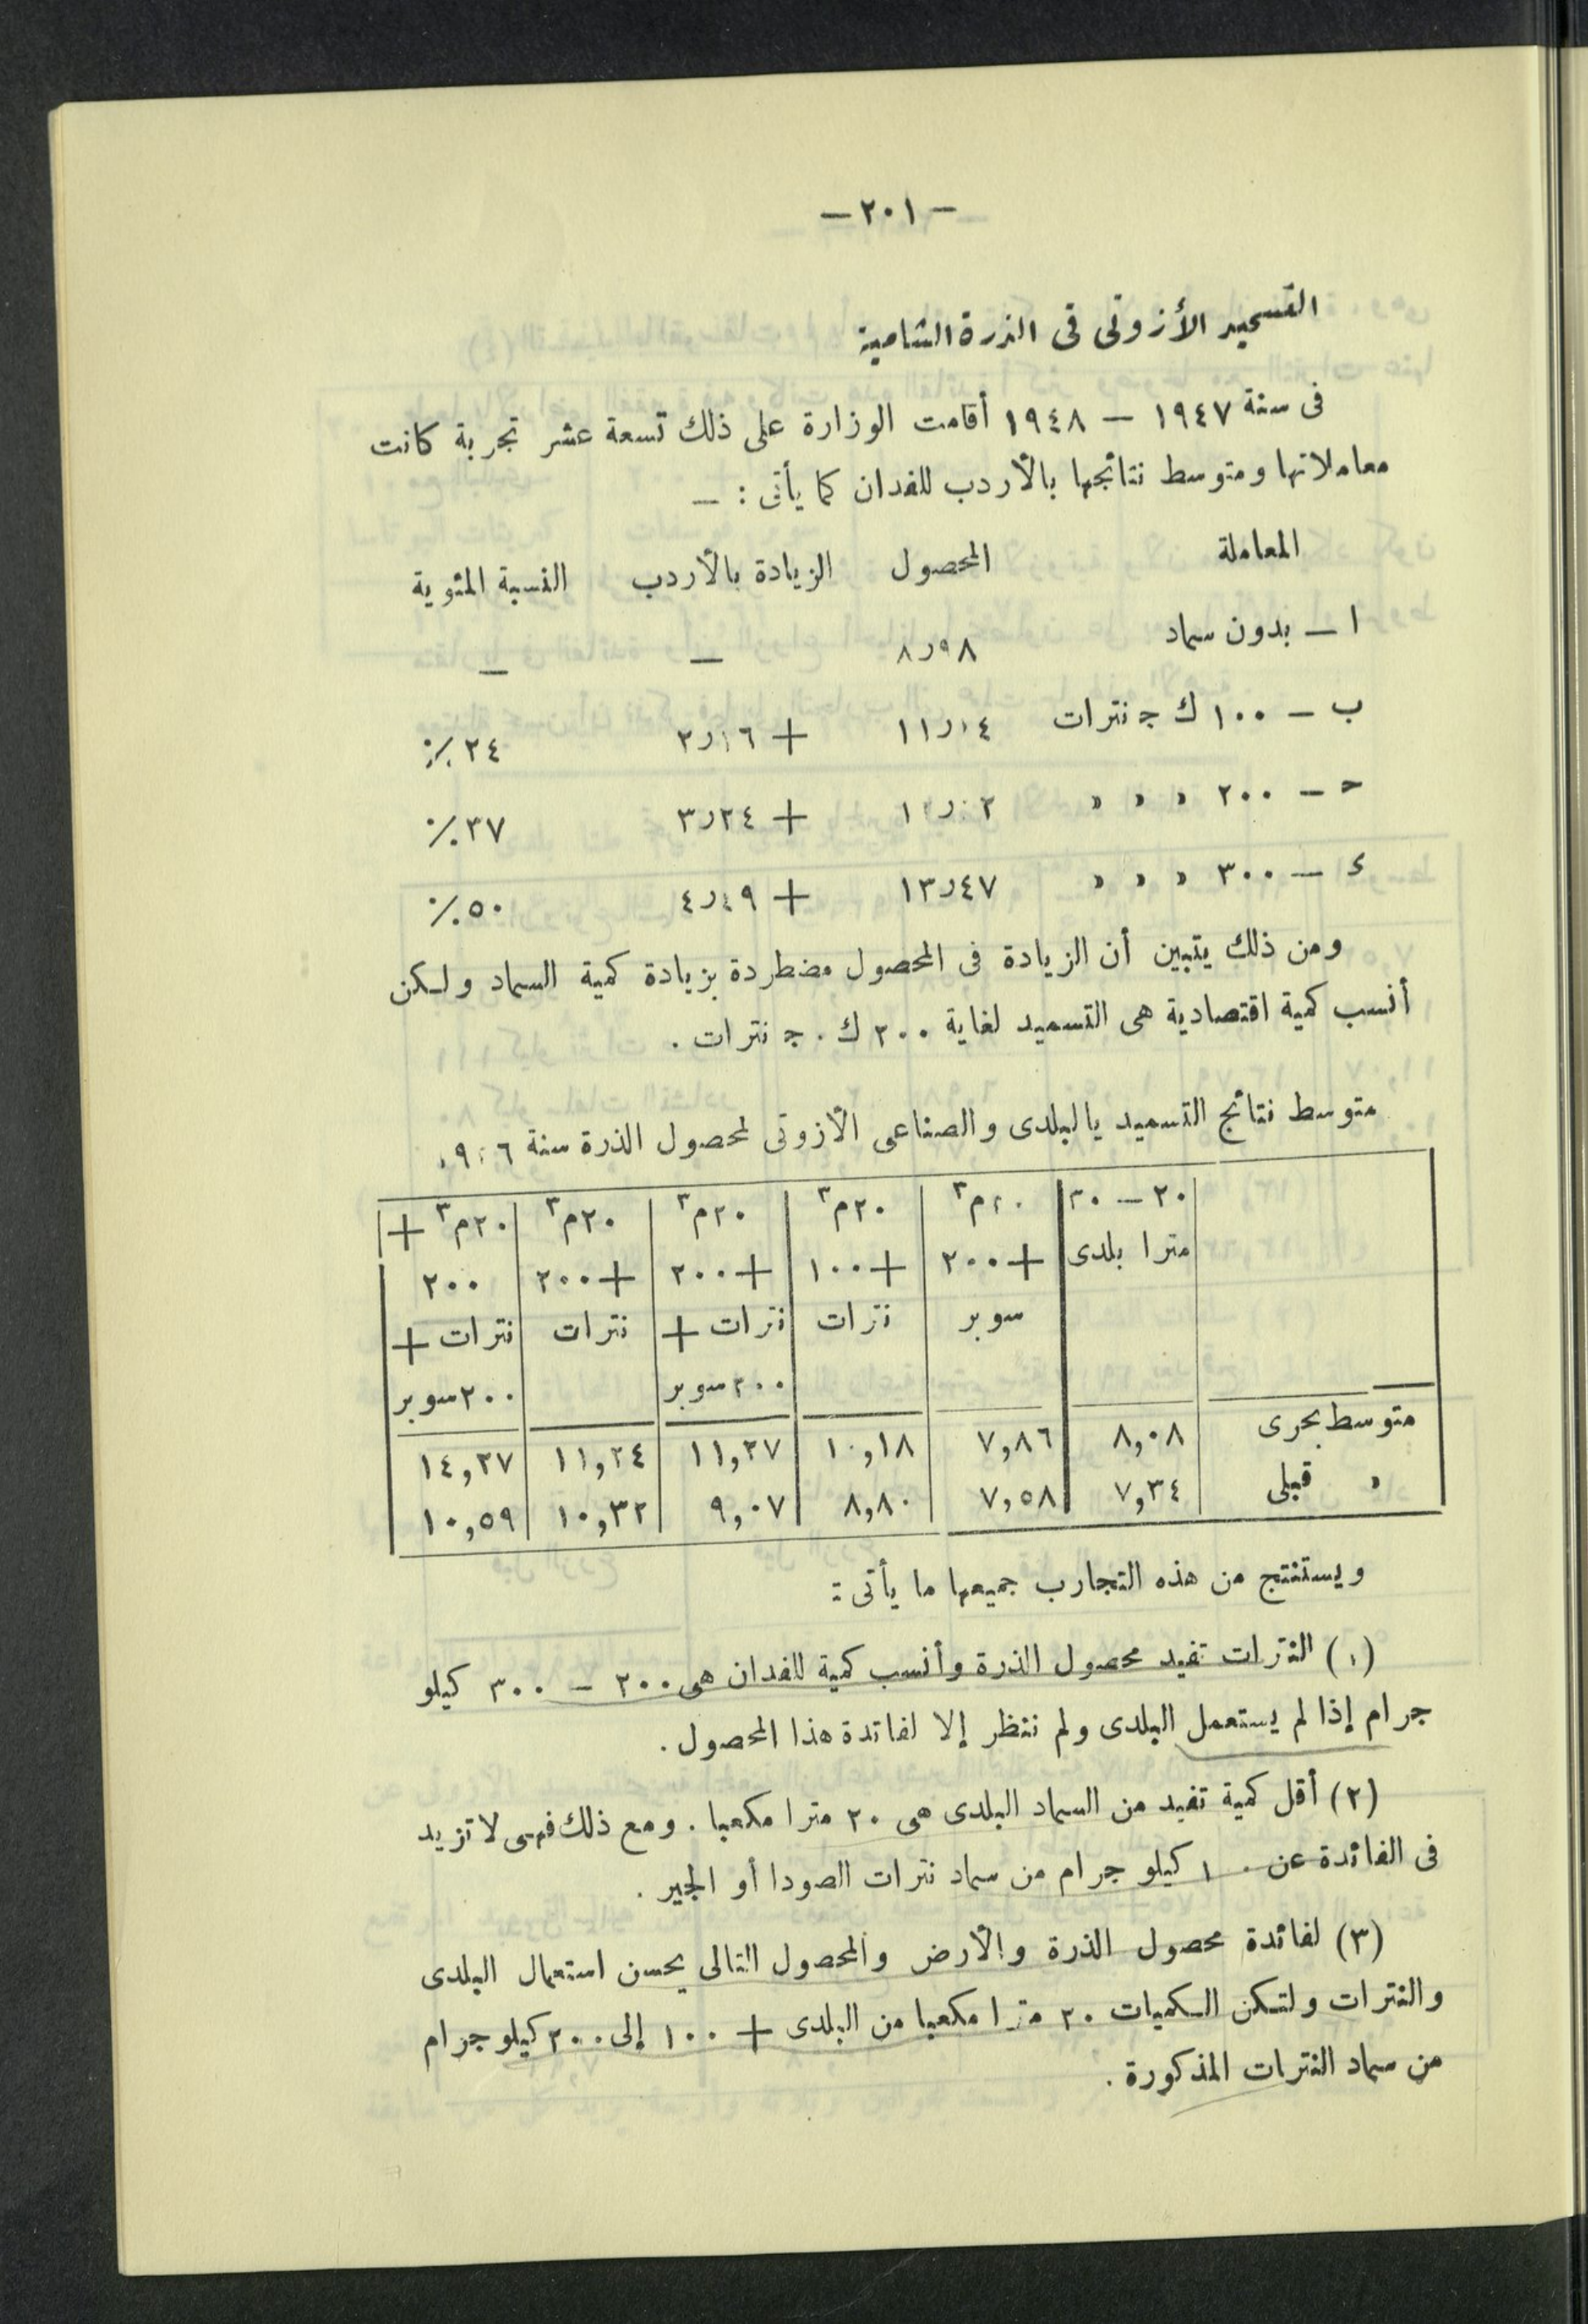 — ٢٠١ —
التسميد الأزوتى فى الذرة الشامية
فى سنة ١٩٤٧ — ١٩٤٨ أقامت الوزارة على ذلك تسعة عشر تجربة كانت
معاملاتها ومتوسط نتائجها بالأردب للفدان كما يأتى : —
المعاملة المحصول الزيادة بالأردب النسبة المئوية
ا — بدون سماد ٨٫٩٨ — —
ب — ١٠٠ ك ج نترات ١١٫١٤ + ٢٫١٦ ٢٤ ٪
ح — ٢٠٠ » » » + ٣٫٢٤ ٣٧ ٪
ء — ٣٠٠ » » » ١٣٫٤٧ + ٤٫٤٩ ٥٠ ٪
ومن ذلك يتبين أن الزيادة فى المحصول مضطردة بزيادة كمية السماد ولكن
أنسب كمية اقتصادية هى التسميد لغاية ٢٠٠ ك . ج نترات .
متوسط نتائج التسميد بالبلدى والصناعى الأزوتى لمحصول الذرة سنة
٢٠ — ٣٠ ٢٠م٣ ٢٠م٣ ٢٠م٣ ٢٠م٣ ٢٠م٣ +
مترا بلدى + ٢٠٠ + ١٠٠ + ٢٠٠ + ٢٠٠ ٢٠٠
سوبر نترات نترات + نترات نترات +
٢٠٠ سوبر ٢٠٠ سوبر
متوسط بحرى ٨,٠٨ ٧,٨٦ ١٠,١٨ ١١,٢٧ ١١,٢٤ ١٤,٢٧
» قبلى ٧,٣٤ ٧,٥٨ ٨,٨٠ ٩,٠٧ ١٠,٣٢ ١٠,٥٩
ويستنتج من هذه التجارب جميعها ما يأتى :
(١) النترات تفيد محصول الذرة وأنسب كمية للفدان هى ٢٠٠ — ٣٠٠ كيلو
جرام إذا لم يستعمل البلدى ولم ننظر إلا لفائدة هذا المحصول .
(٢) أقل كمية تفيد من السماد البلدى هى ٢٠ مترا مكعبا . ومع ذلك فهى لا تزيد
فى الفائدة عن كيلو جرام من سماد نترات الصودا أو الجير .
(٣) لفائدة محصول الذرة والأرض والمحصول التالى يحسن استعمال البلدى
والنترات ولتكن الكميات ٢٠ مترا مكعبا من البلدى + ١٠٠ إلى ٢٠٠ كيلو جرام
من سماد النترات المذكورة .